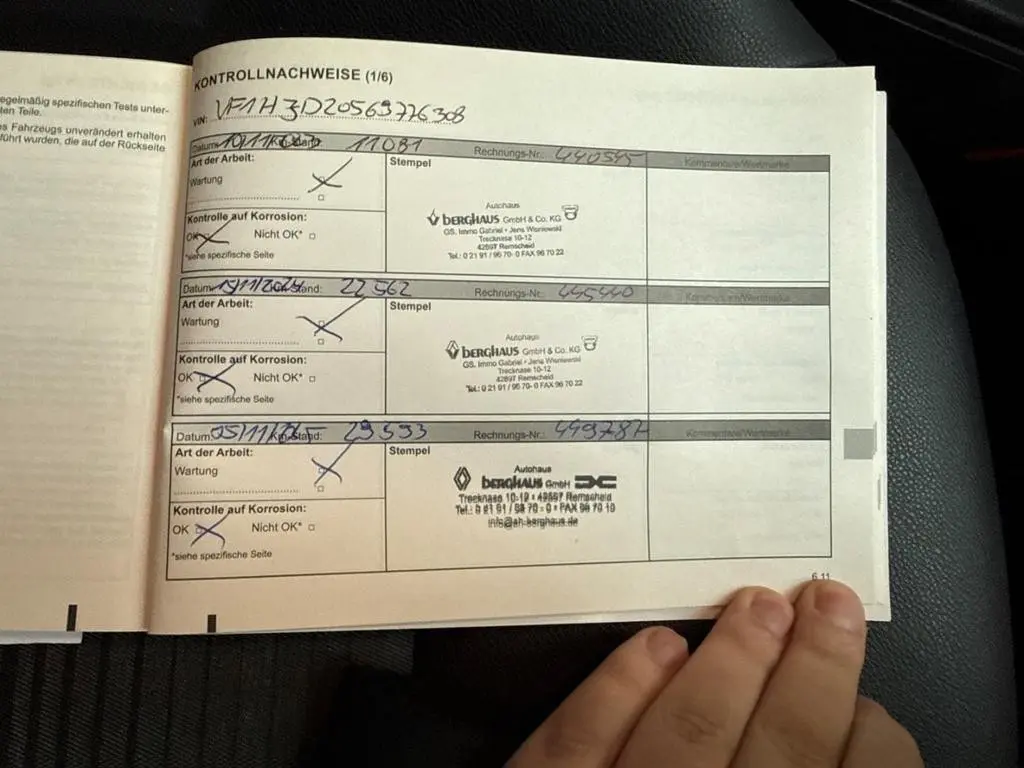 egelmäßig spezifischen Tests unter-
ten Teile.
s Fahrzeugs unverändert erhalten
führt wurden, die auf der Rückseite
KONTROLLNACHWEISE (1/6)
VIN: VF1H3D20569776308
Datum: 10/11/ Km-Stand: 11081 Rechnungs-Nr.: 440545 Kommentare/Wertmarke
Art der Arbeit: Stempel
Wartung
Kontrolle auf Korrosion:
OK Nicht OK*
*siehe spezifische Seite
Autohaus
BERGHAUS GmbH & Co. KG
GS. Immo Gabriel • Jens Wisniewski
Trecknase 10-12
42897 Remscheid
Tel.: 0 21 91 / 96 70- 0 FAX 96 70 22
Datum: 15/11/2024 Km-Stand: 22562 Rechnungs-Nr.: 445440 Kommentare/Wertmarke
Art der Arbeit: Stempel
Wartung
Kontrolle auf Korrosion:
OK Nicht OK*
*siehe spezifische Seite
Autohaus
BERGHAUS GmbH & Co. KG
GS. Immo Gabriel • Jens Wisniewski
Trecknase 10-12
42897 Remscheid
Tel.: 0 21 91 / 96 70- 0 FAX 96 70 22
Datum: 05/11/2025 Km-Stand: 29593 Rechnungs-Nr.: 449787 Kommentare/Wertmarke
Art der Arbeit: Stempel
Wartung
Kontrolle auf Korrosion:
OK Nicht OK*
*siehe spezifische Seite
Autohaus
BERGHAUS GmbH
Trecknase 10-12 • 42897 Remscheid
Tel.: 0 21 91 / 96 70 - 0 • FAX 96 70 10
info@ah-berghaus.de
6.11